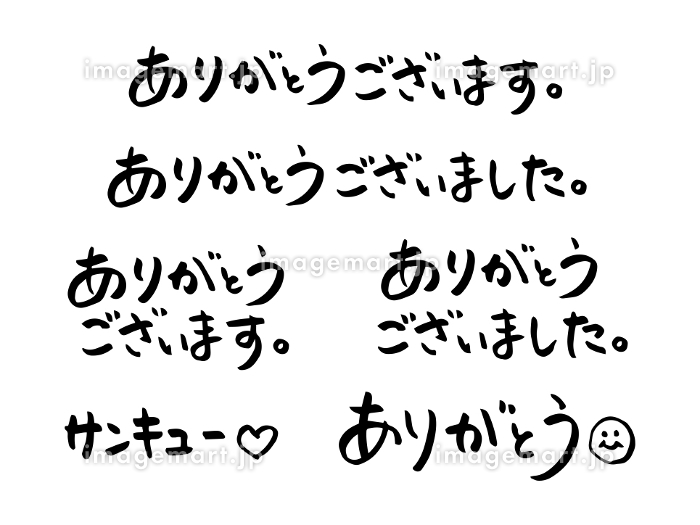 ありがとうございます。
ありがとうございました。
ありがとう
ございます。
ありがとう
ございました。
サンキュー♡
ありがとう
imagemart.jp
imagemart.jp
imagemart.jp
imagemart.jp
imagemart.jp
imagemart.jp